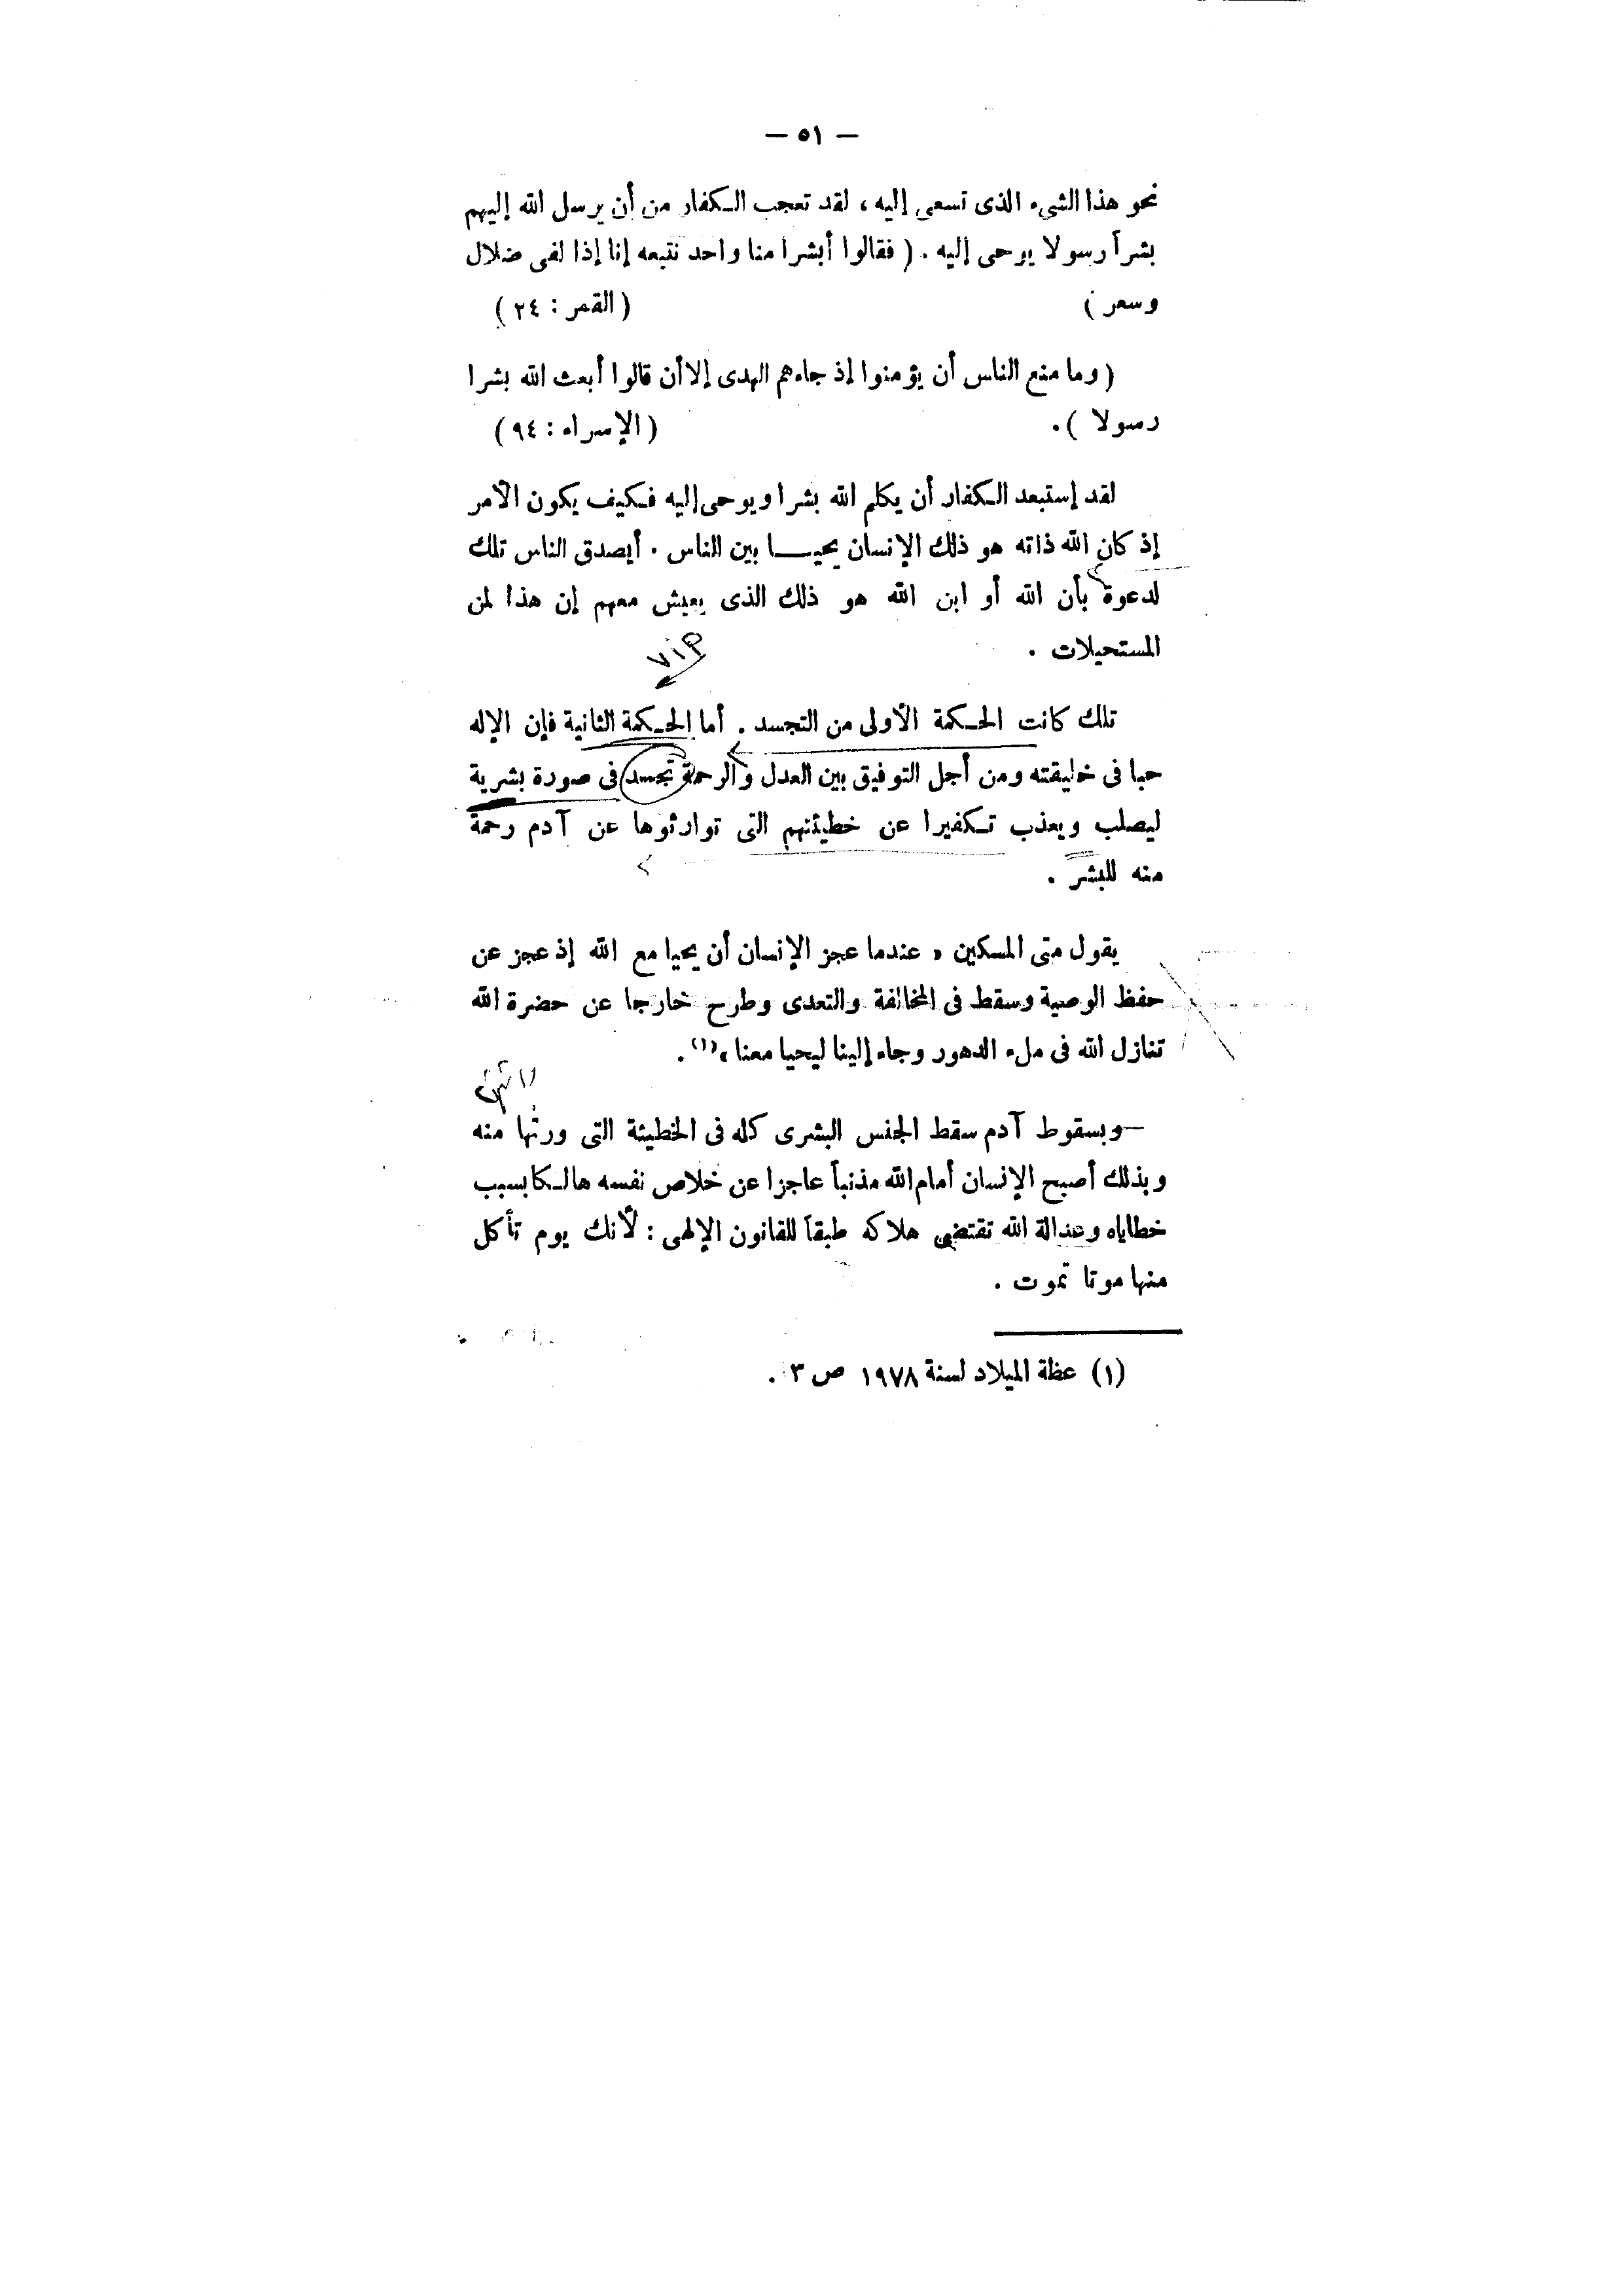 — ٥١ —
نحو هذا الشىء الذى تسعى إليه ، لقد تعجب الكفار من أن يرسل الله إليهم
بشراً رسولا يوحى إليه . ( فقالوا أبشرا منا واحد نتبعه إنا إذا لفى ضلال
وسعر ) ( القمر : ٢٤ )
( وما منع الناس أن يؤمنوا إذ جاءهم الهدى إلا أن قالوا أبعث الله بشرا
رسولا ) . ( الإسراء : ٩٤ )
لقد إستبعد الكفار أن يكلم الله بشرا ويوحى إليه فكيف يكون الأمر
إذ كان الله ذاته هو ذلك الإنسان يحيا بين الناس . أيصدق الناس تلك
لدعوة بأن الله أو ابن الله هو ذلك الذى يعيش معهم إن هذا لمن
المستحيلات .
تلك كانت الحكمة الأولى من التجسد . أما الحكمة الثانية فإن الإله
حبا فى خليقته ومن أجل التوفيق بين العدل والرحمة تجسد فى صورة بشرية
ليصلب ويعذب تكفيرا عن خطيئتهم التى توارثوها عن آدم رحمة
منه للبشر .
يقول متى المسكين « عندما عجز الإنسان أن يحيا مع الله إذ عجز عن
حفظ الوصية وسقط فى المخالفة والتعدى وطرح خارجا عن حضرة الله
تنازل الله فى ملء الدهور وجاء إلينا ليحيا معنا »(١) .
— وبسقوط آدم سقط الجنس البشرى كله فى الخطيئة التى ورثها منه
وبذلك أصبح الإنسان أمام الله مذنباً عاجزا عن خلاص نفسه هالكا بسبب
خطاياه وعدالة الله تقتضى هلاكه طبقاً للقانون الإلهى : لأنك يوم تأكل
منها موتا تموت .
(١) عظة الميلاد لسنة ١٩٧٨ ص ٣ .